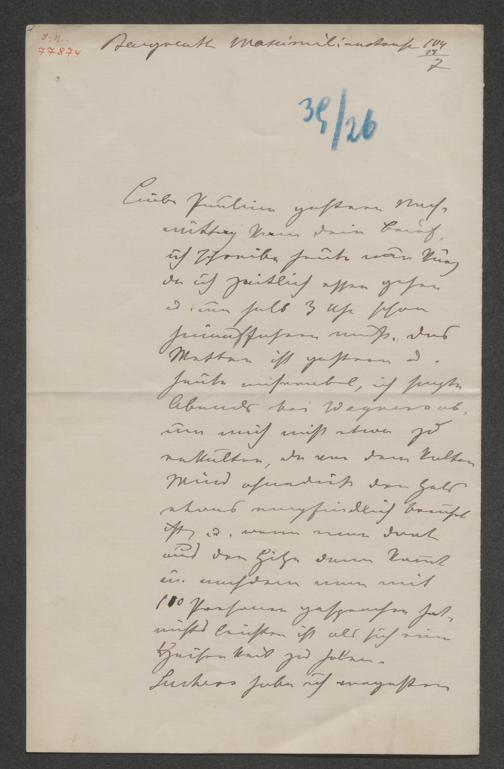 I. N.
77874
Bayreuth Maximilianstrasse 104
18/7
39/26
Liebe Pauline gestern Nach-
mittag kam dein Brief,
ich schreibe heute nur kurz
da ich zeitlich essen gehen
u. um halb 3 Uhr schon
hinauffahren muß. Das
Wetter ist gestern u.
heute miserabel, ich sagte
Abends bei Wagners ab,
um mich nicht etwa zu
erkälten, da von dem kalten
Wind ohnedieß der Hals
etwas empfindlich
ist, u. wenn man dort
aus der Hitze dann kommt
u. nachdem man mit
100 Personen gesprochen hat,
nichts leichter ist als sich eine
Heiserkeit zu holen.
habe ich vorgestern